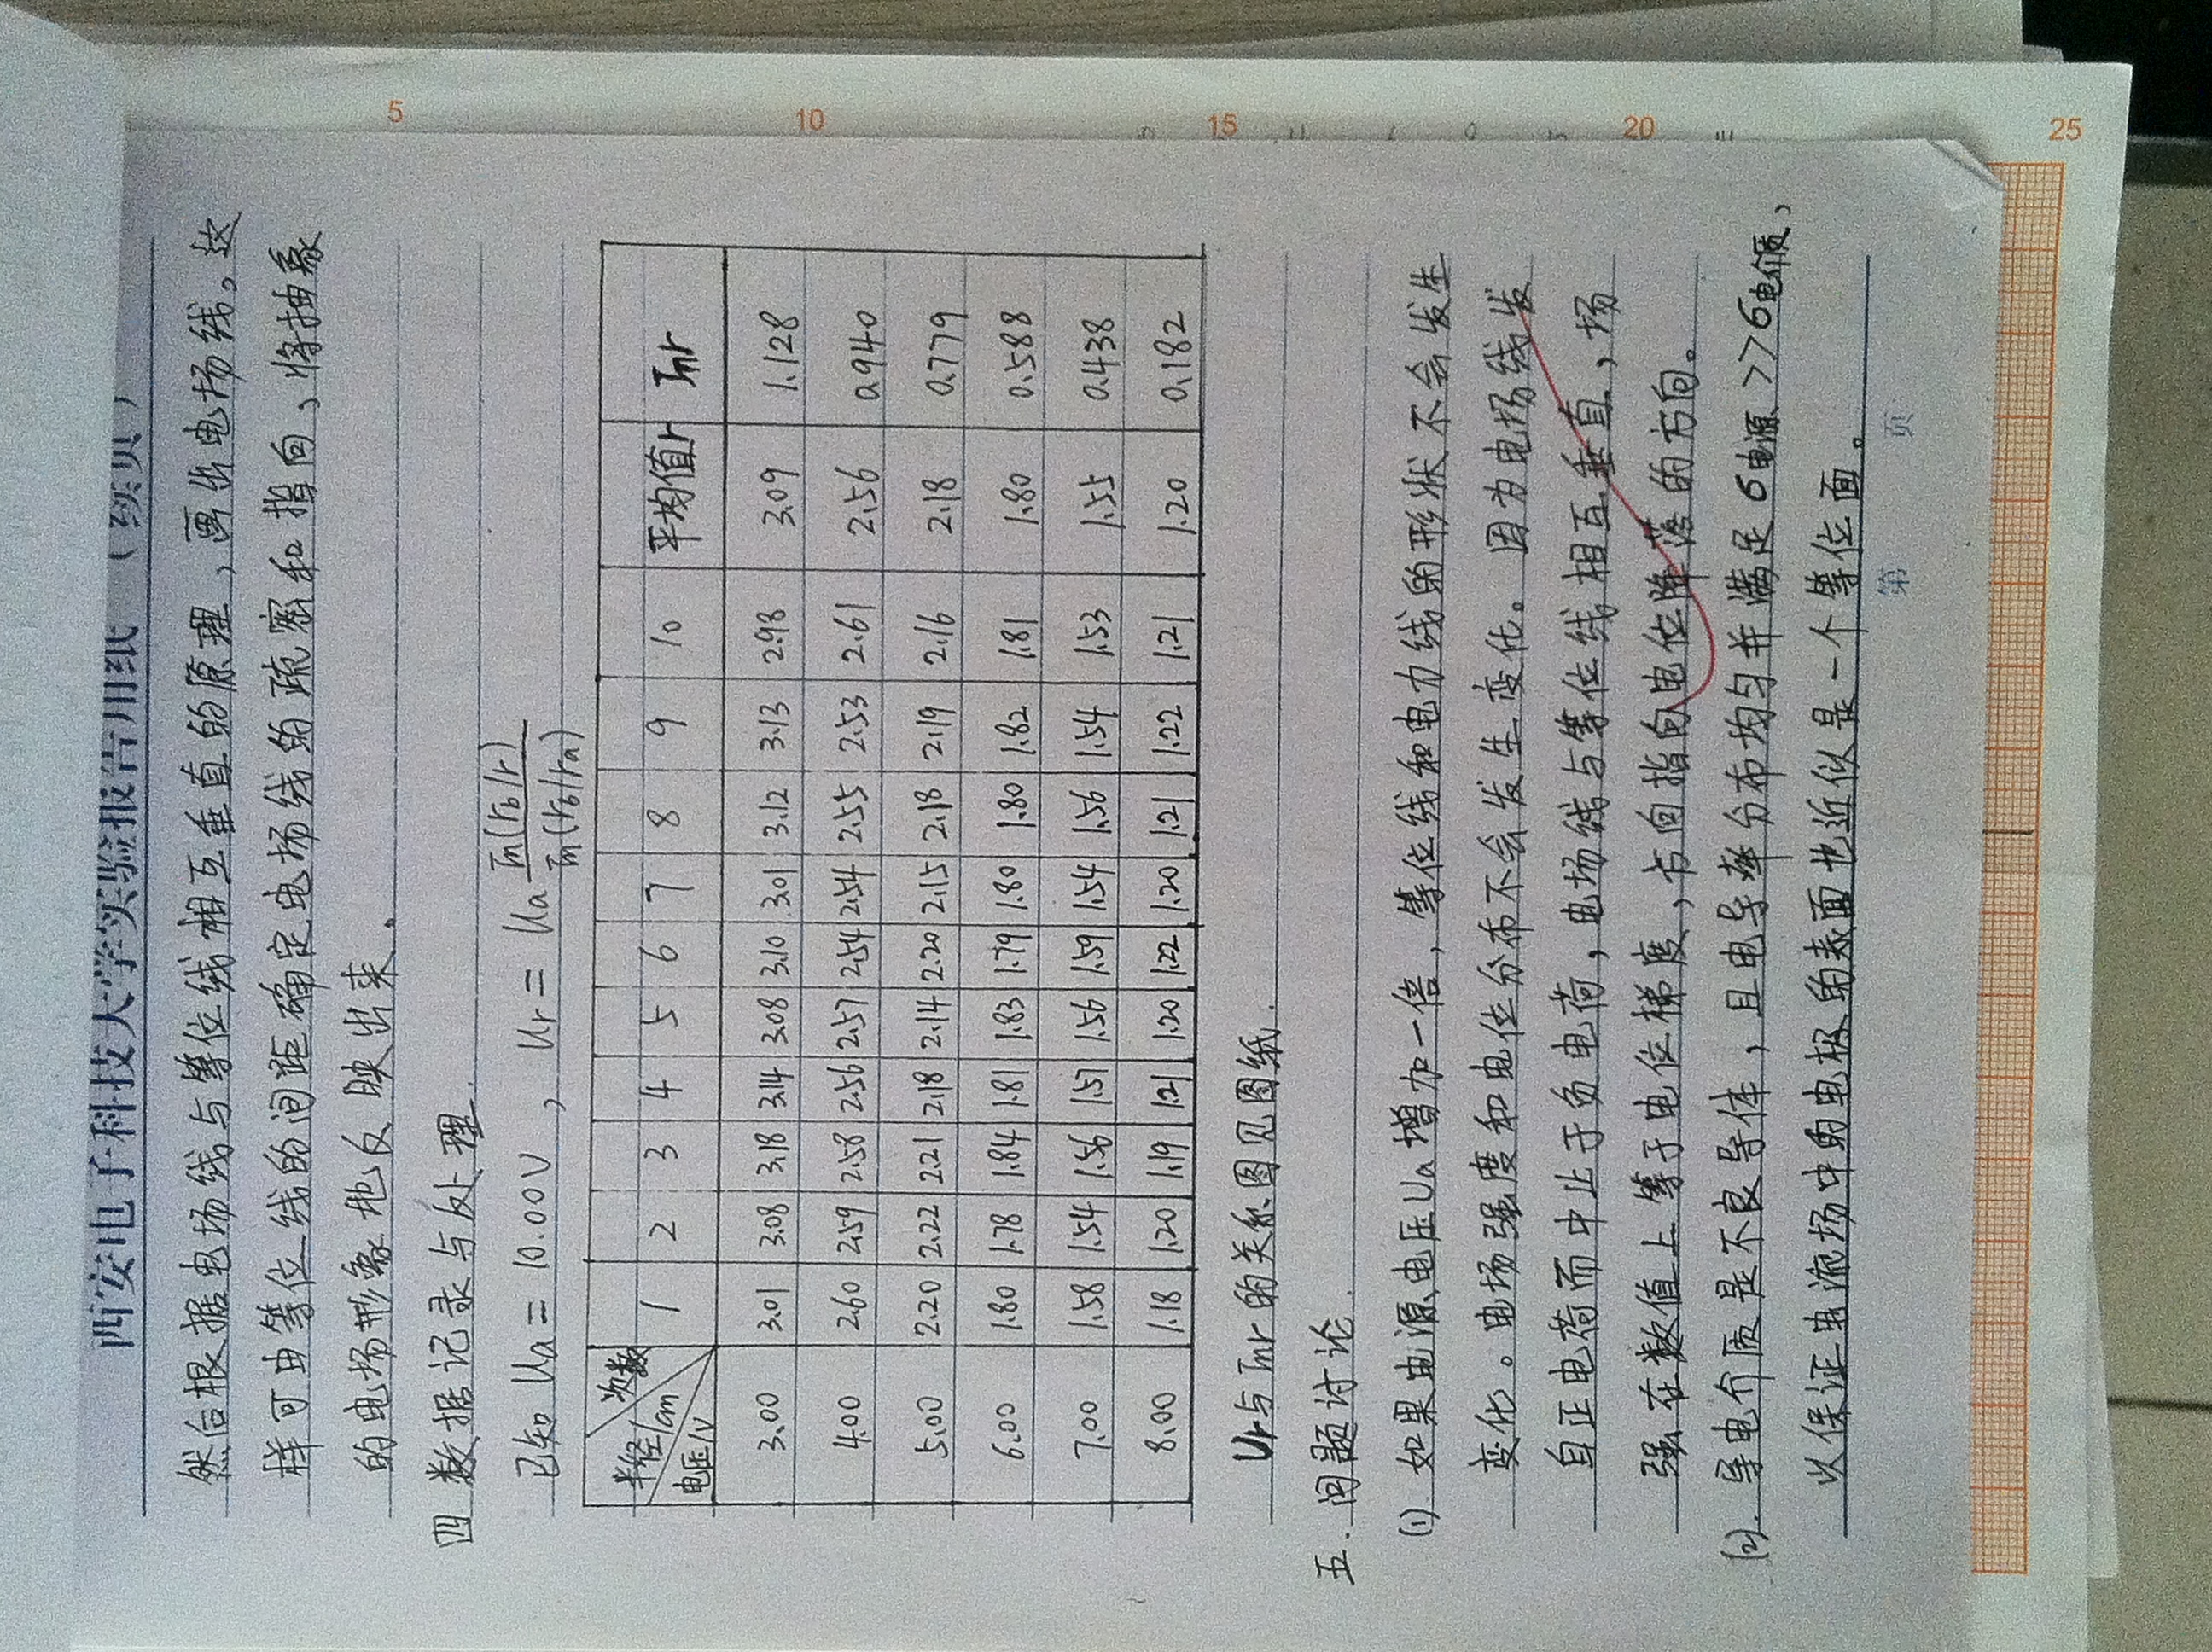 西安电子科技大学实验报告用纸 (续页)
然后根据电场线与等位线相互垂直的原理,画出电场线。这
样可由等位线的间距确定电场线的疏密和指向,将抽象
的电场形象地反映出来。
四 数据记录与处理.
已知 Ua = 10.00V , Ur = Ua ln(rb/r) / ln(rb/ra)
半径/cm 次数 电压/V 1 2 3 4 5 6 7 8 9 10 平均值r lnr
3.00 3.01 3.08 3.18 3.14 3.08 3.10 3.01 3.12 3.13 2.98 3.09 1.128
4.00 2.60 2.59 2.58 2.56 2.57 2.54 2.54 2.55 2.53 2.61 2.56 0.940
5.00 2.20 2.22 2.21 2.18 2.14 2.20 2.15 2.18 2.19 2.16 2.18 0.779
6.00 1.80 1.78 1.84 1.81 1.83 1.79 1.80 1.80 1.82 1.81 1.80 0.588
7.00 1.58 1.54 1.56 1.57 1.56 1.59 1.54 1.56 1.54 1.53 1.55 0.438
8.00 1.18 1.20 1.19 1.21 1.20 1.22 1.20 1.21 1.22 1.21 1.20 0.182
Ur与lnr的关系图见图纸.
五. 问题讨论.
(1) 如果电源电压Ua增加一倍,等位线和电力线的形状不会发生
变化。电场强度和电位分布不会发生变化。因为电场线发
自正电荷而中止于负电荷,电场线与等位线相互垂直,场
强在数值上等于电位梯度,方向指向电位降落的方向。
(2). 导电介质是不良导体,且电导率分布均匀并满足 σ电源 >>σ电介质,
以保证电流场中的电极的表面也近似是一个等位面。
第 页
5
10
15
20
25